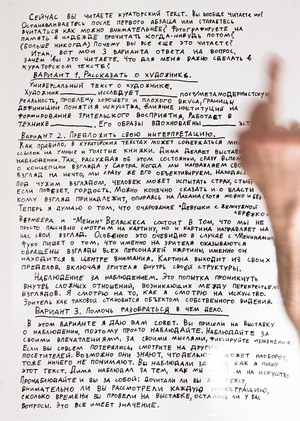 Сейчас вы читаете кураторский текст. Вы вообще читаете их?
Останавливаетесь после первого абзаца или стараетесь
вчитаться как можно внимательнее? Фотографируете на
память в надежде прочитать когда-нибудь потом
(больше никогда)? Почему вы все еще это читаете?
Итак, вот мои 3 варианта ответа на вопрос,
зачем вы это читаете. Что для меня важно сделать в
кураторском тексте?
Вариант 1. Рассказать о художнике.
Универсальный текст о художнике.
Художник исследует постмодернистскую
реальность, проблему хорошего и плохого вкуса, границы
дефиниции понятия искусства, влияние институции на
формирование зрительского восприятия. Работает в
технике Его образы вдохновлены
Вариант 2. Предложить свою интерпретацию.
Как правило, в кураторских текстах может содержаться много
ссылок на умные и толстые книжки. Дима делает выставку
наблюдения. Так, рассуждая об этом состоянии, сразу
о концепции взгляда у Сартра. Когда мы направляем свой
взгляд на нечто, мы сразу же его объективируем. Находясь
под чужим взглядом, человек может испытать страх, стыд
или, наоборот, гордость. Можно конечно сказать и о власти
кому взгляд принадлежит, опираясь на Лакана
Теперь я думаю о том, что очарование "Девушки с жемчужной
сережкой"
Вермеера и "Менин" Веласкеса состоит в том, что мы не
просто пассивно смотрим на картину, но и картина направляет на
нас свой взгляд. Особенно это очевидно в случае с Менинами.
Фуко пишет о том, что именно на зрителя оказываются
обращены взгляды всех персонажей картины, именно он
находится в центре внимания. Картина выходит из своих
пределов, включая зрителя внутрь своей структуры.
Наблюдение за наблюдением. Это попытка проникнуть
внутрь сложных отношений, возникающих между перекрестьем
взглядов. Я смотрю на то, как я смотрю на искусство.
Зритель как таковой становится объектом собственного видения.
Вариант 3. Помочь разобраться в чем дело.
В этом варианте я даю вам совет. Вы пришли на выставку
о наблюдении, поэтому просто наблюдайте. Наблюдайте за
своими впечатлениями, за своими мыслями, фиксируйте изменения.
Если вы совсем потерялись, смотрите на других
посетителей. Возможно они знают, что делать. Может наоборот,
тоже ничего не понимают. Вы наблюдали за как я пишу
этот текст. Дима наблюдал за тем, как мы на искусство.
Пронаблюдайте и вы за собой: дочитали ли вы текст,
внимательно ли вы рассмотрели каждую иллюстрацию,
сколько времени вы провели на выставке, остались ли у вас
вопросы. Это все имеет значение.